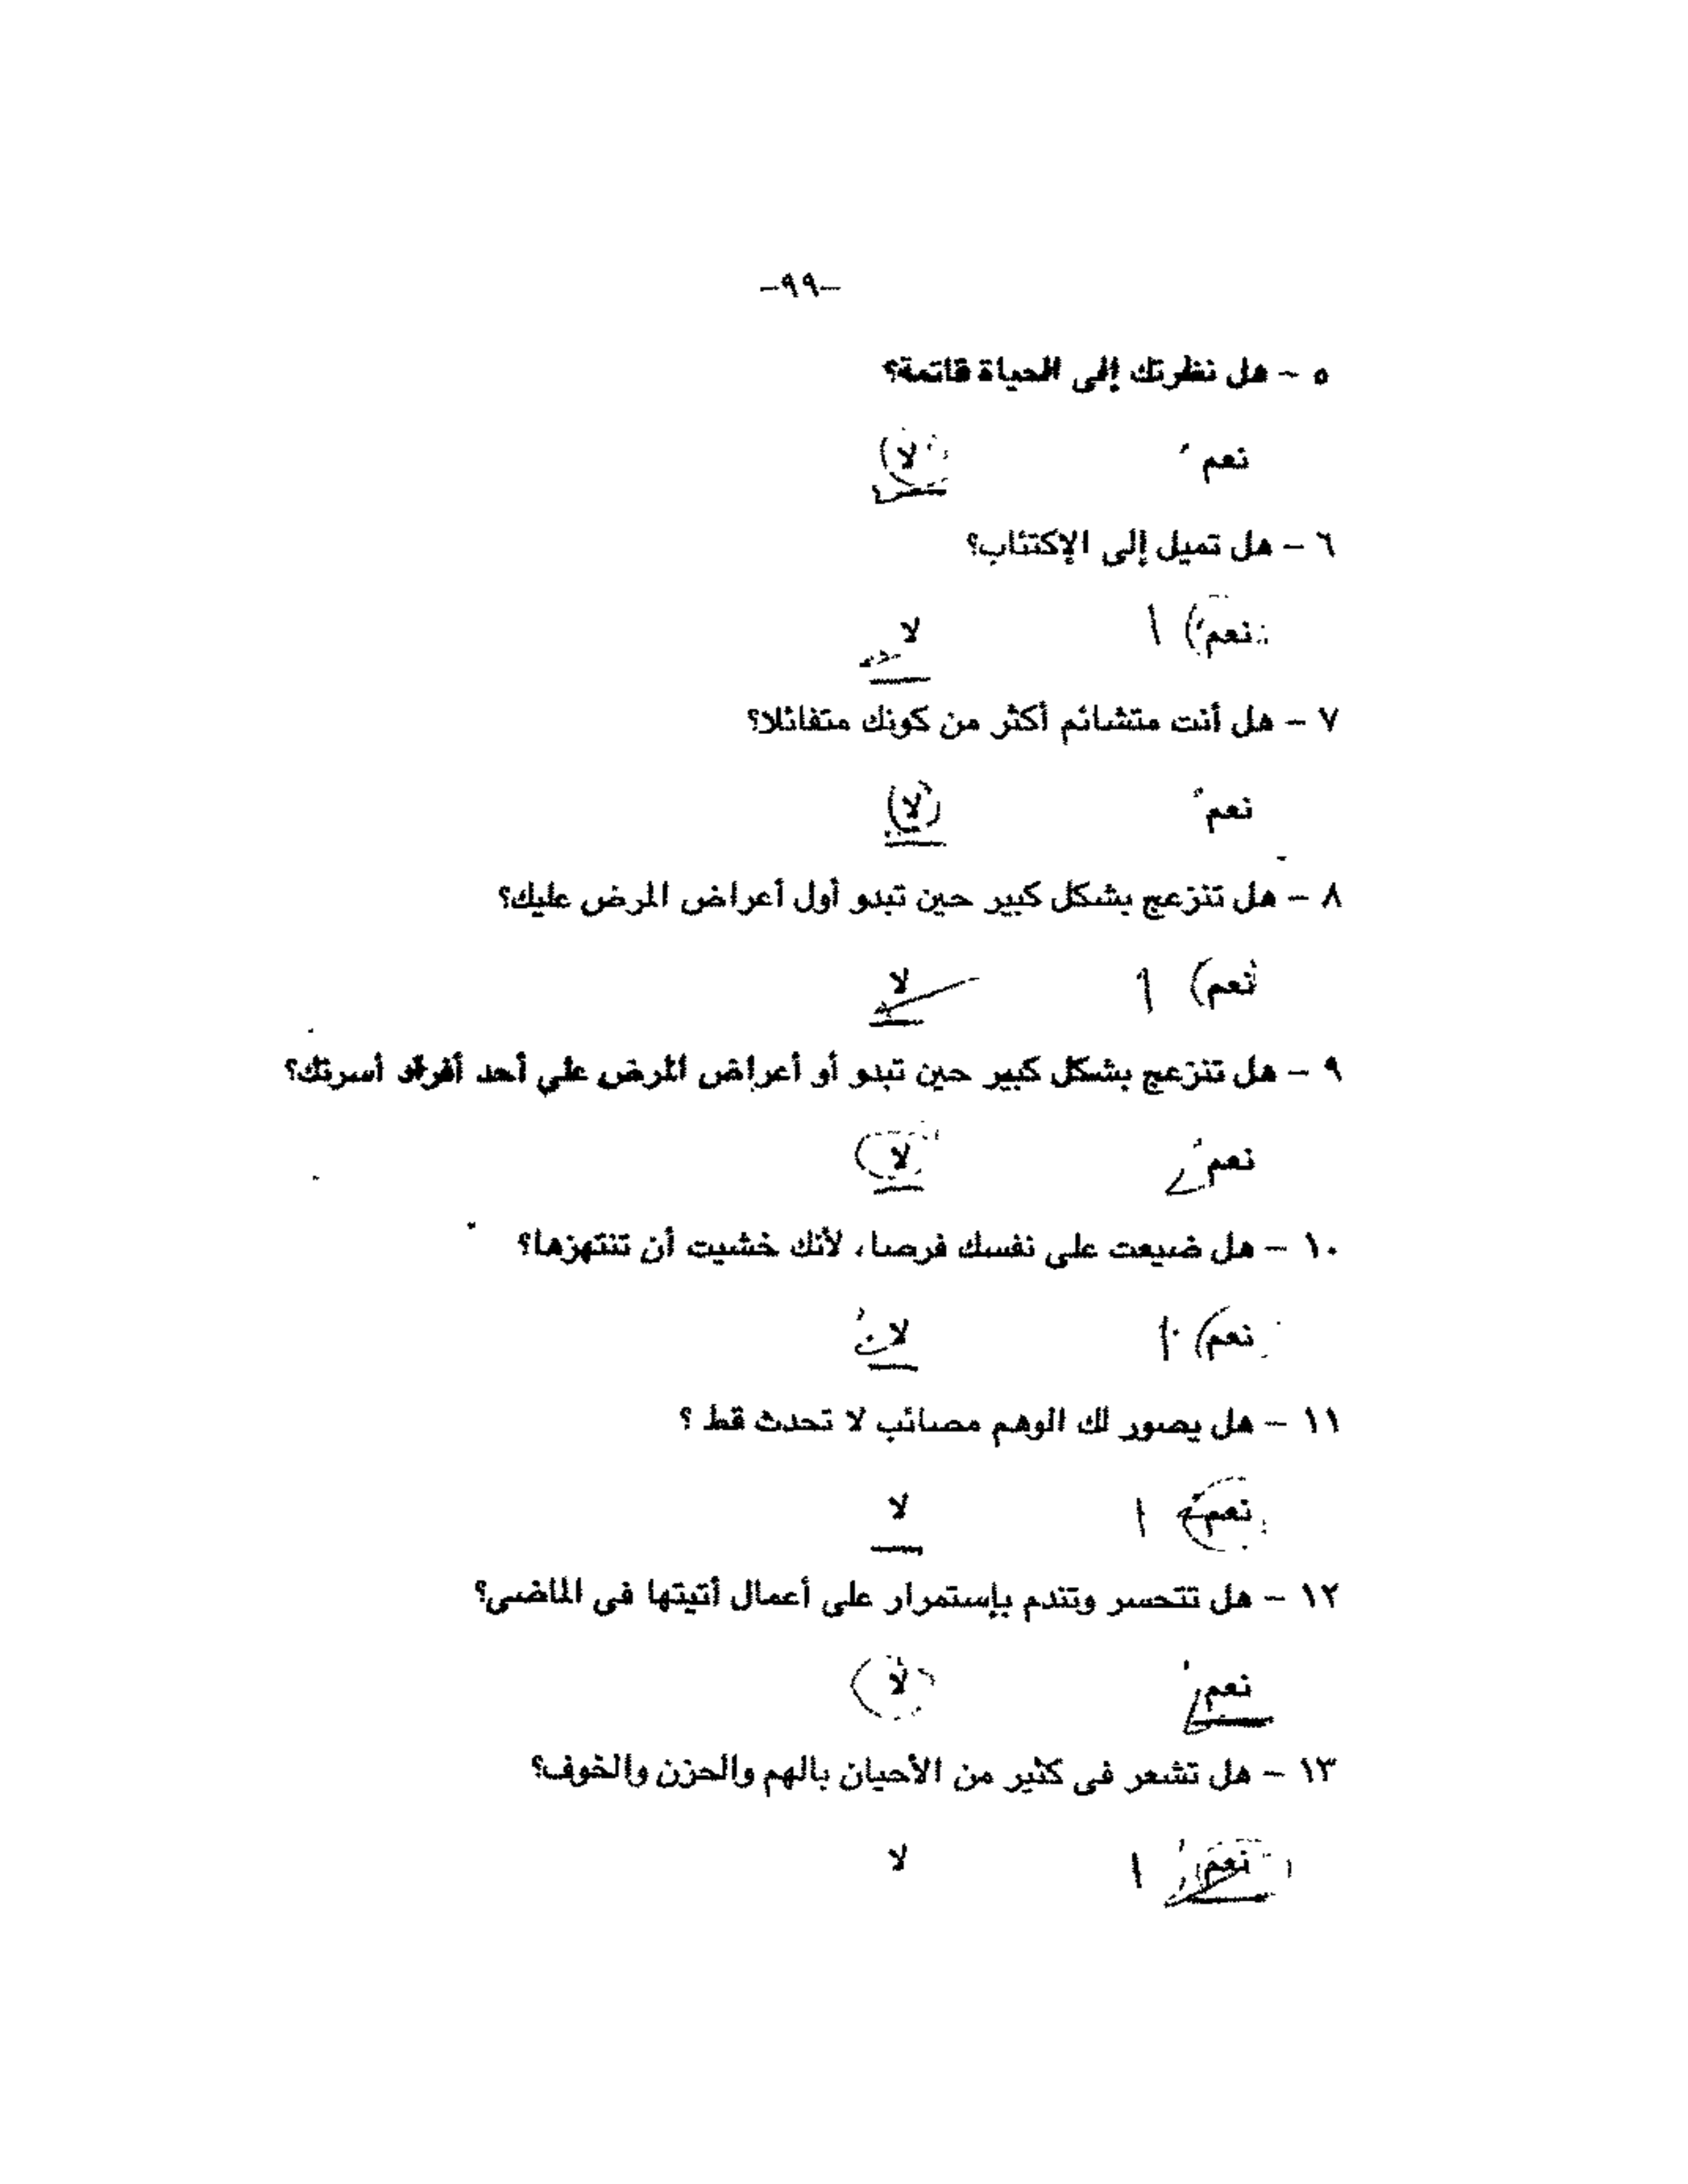 -٩٩-
٥ - هل نظرتك إلى الحياة قاتمة؟
نعم لا
٦ - هل تميل إلى الإكتئاب؟
نعم ا لا
٧ - هل أنت متشائم أكثر من كونك متفائلا؟
نعم لا
٨ - هل تنزعج بشكل كبير حين تبدو أول أعراض المرض عليك؟
نعم ا لا
٩ - هل تنزعج بشكل كبير حين تبدو أو أعراض المرض علي أحد أفراد أسرتك؟
نعم لا
١٠ - هل ضيعت على نفسك فرصا، لأنك خشيت أن تنتهزها؟
نعم ا لا
١١ - هل يصور لك الوهم مصائب لا تحدث قط ؟
نعم ا لا
١٢ - هل تتحسر وتندم بإستمرار على أعمال أتيتها فى الماضى؟
نعم لا
١٣ - هل تشعر فى كثير من الأحيان بالهم والحزن والخوف؟
نعم ا لا